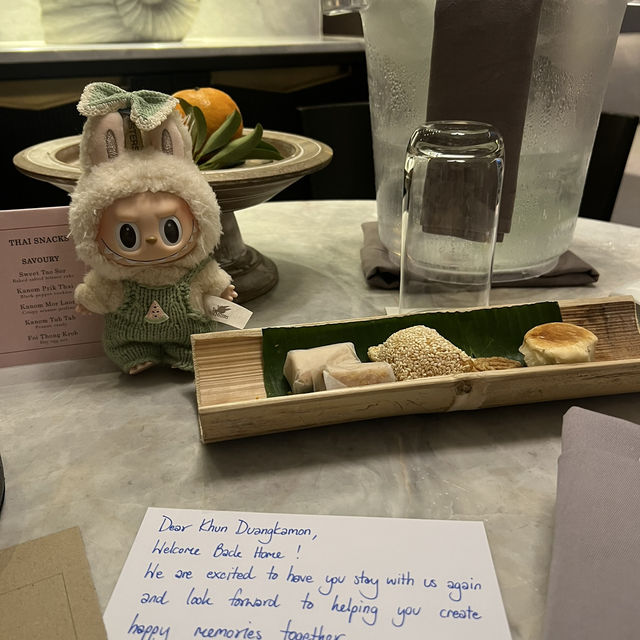 THAI SNACKS
SAVOURY
Sweet Tao Sar
Kanom Prik Thai
Kanom Mor Laeng
Kanom Tub Tab
Foi Thong Krob
Dear Khun Duangkamon,
Welcome Back Home !
We are excited to have you stay with us again
and look forward to helping you create
happy memories together